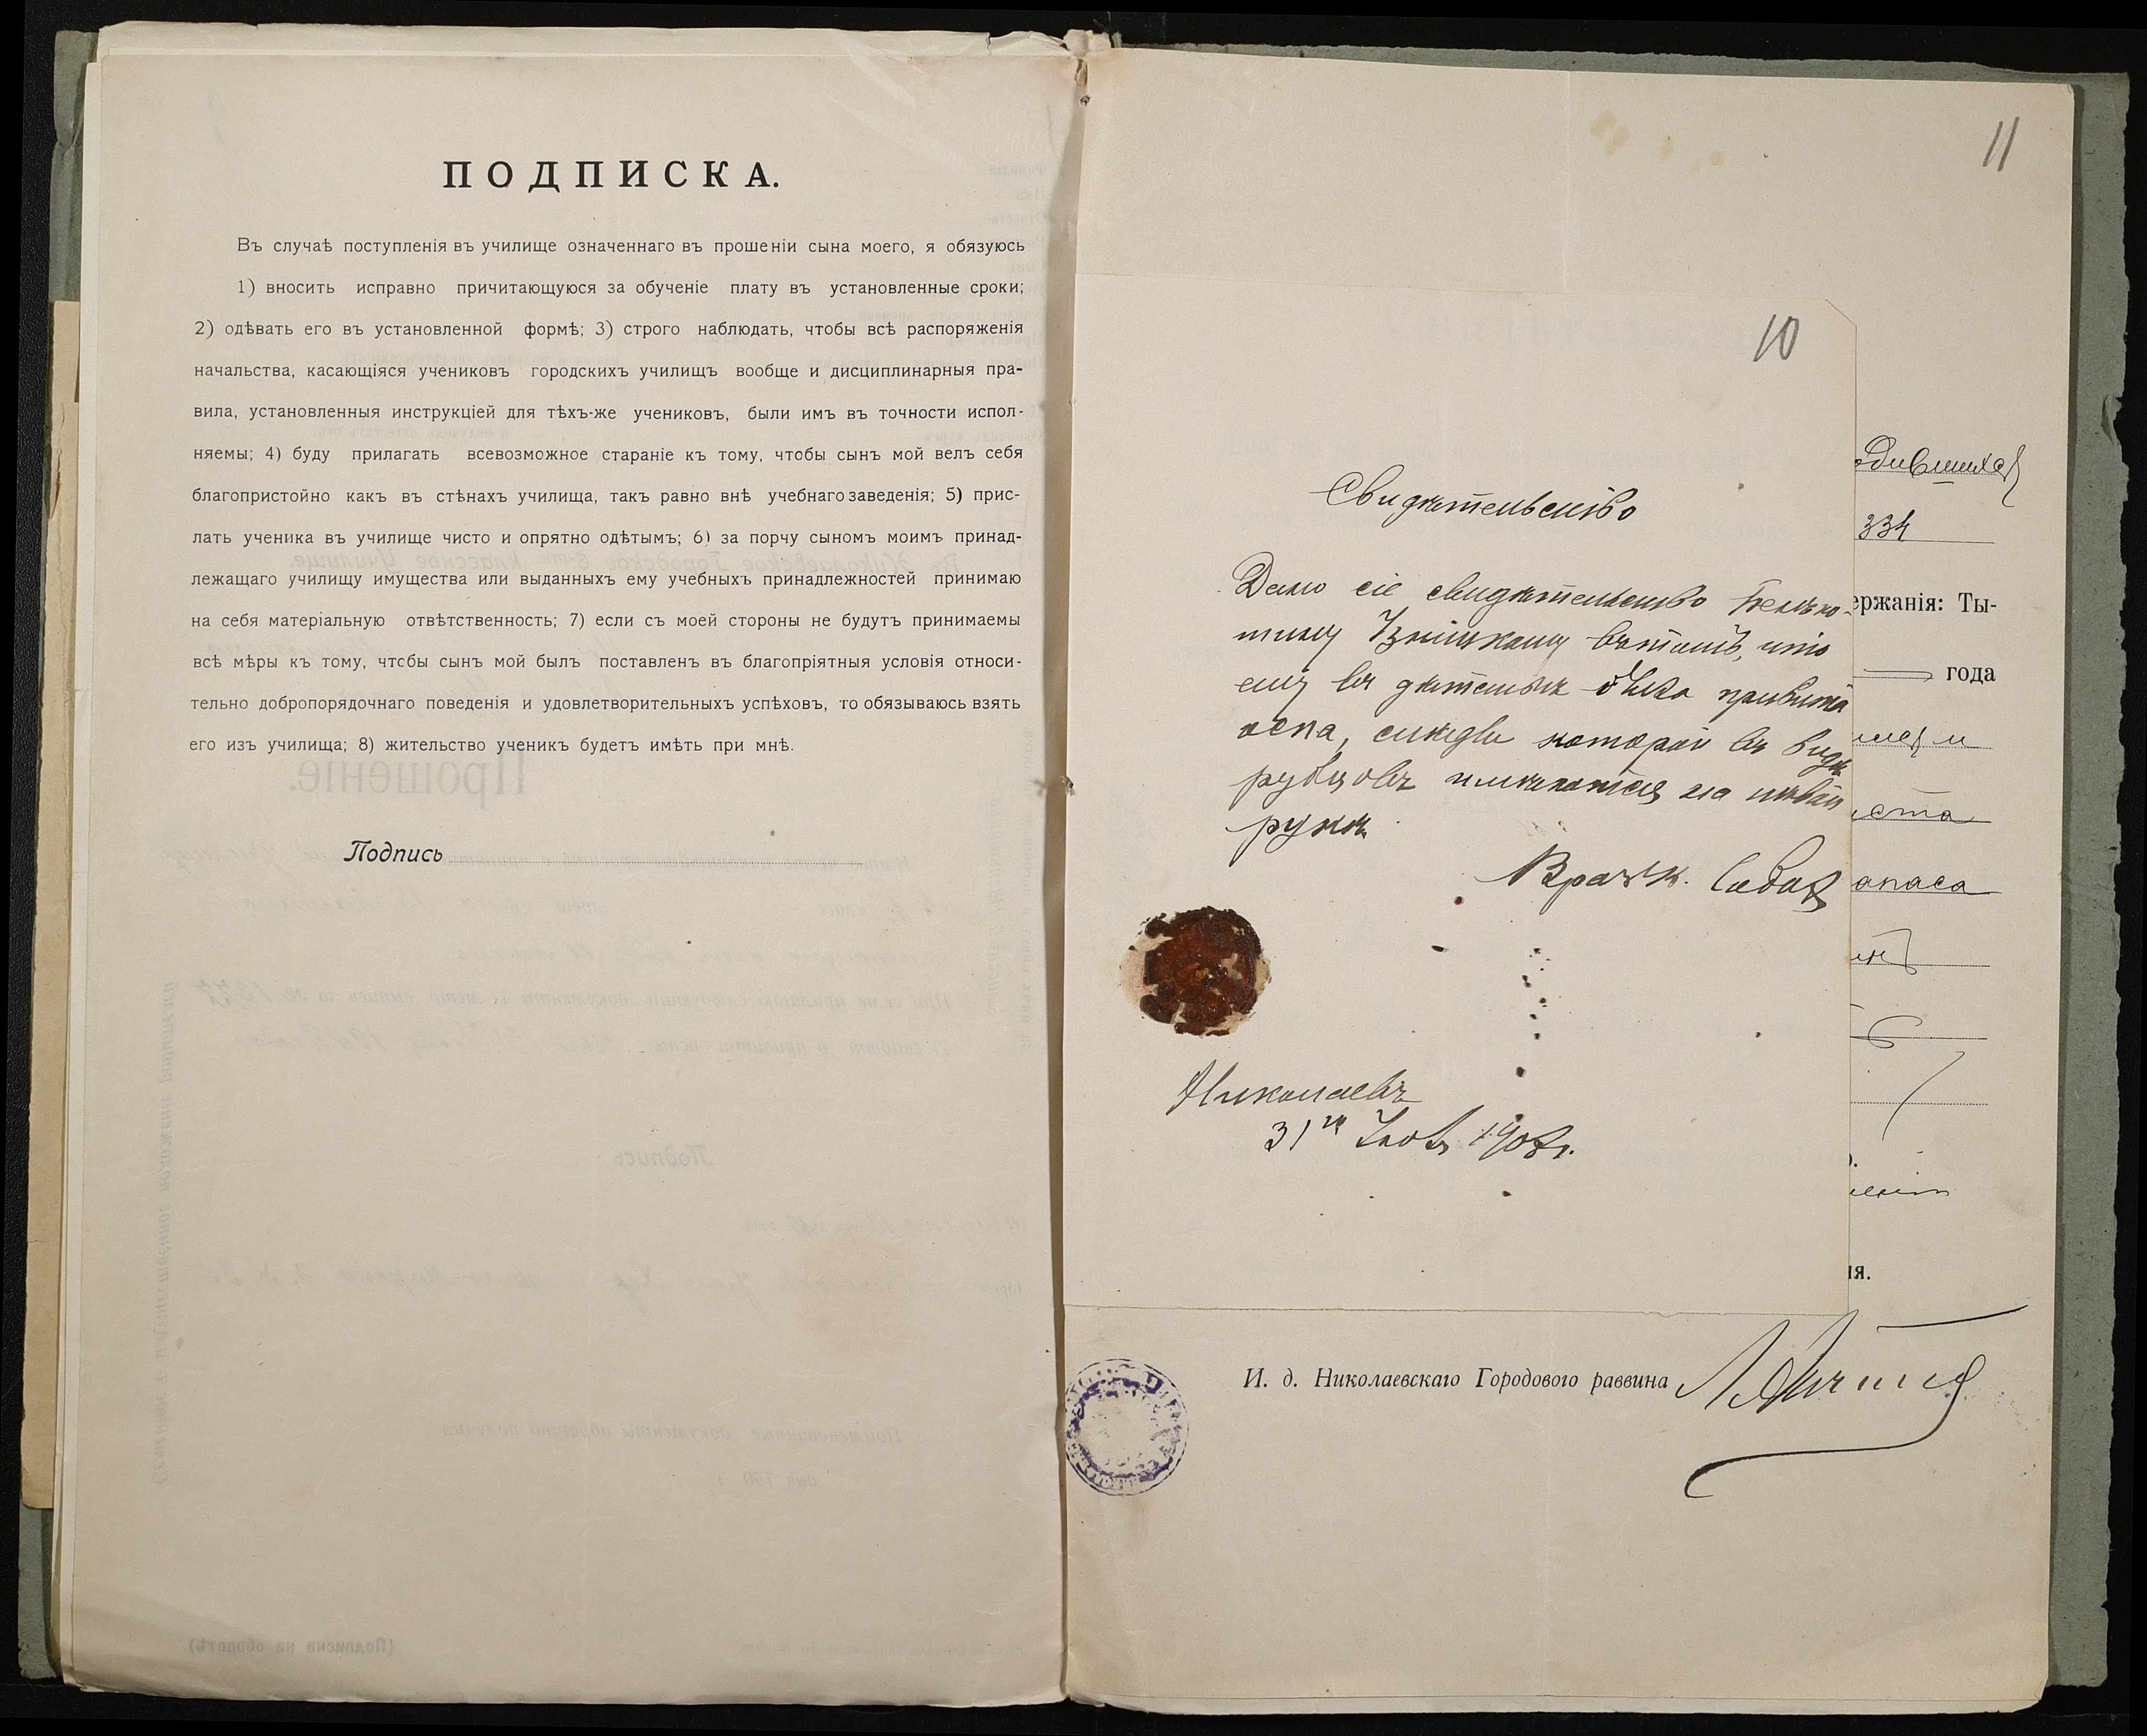 ПОДПИСКА.
Въ случаѣ поступленія въ училище означеннаго въ прошеніи сына моего, я обязуюсь
1) вносить исправно причитающуюся за обученіе плату въ установленные сроки;
2) одѣвать его въ установленной формѣ; 3) строго наблюдать, чтобы всѣ распоряженія
начальства, касающіяся учениковъ городскихъ училищъ вообще и дисциплинарныя пра-
вила, установленныя инструкціей для тѣхъ-же учениковъ, были имъ въ точности испол-
няемы; 4) буду прилагать всевозможное стараніе къ тому, чтобы сынъ мой велъ себя
благопристойно какъ въ стѣнахъ училища, такъ равно внѣ учебнаго заведенія; 5) прис-
лать ученика въ училище чисто и опрятно одѣтымъ; 6) за порчу сыномъ моимъ принад-
лежащаго училищу имущества или выданныхъ ему учебныхъ принадлежностей принимаю
на себя матеріальную отвѣтственность; 7) если съ моей стороны не будутъ принимаемы
всѣ мѣры къ тому, чтобы сынъ мой былъ поставленъ въ благопріятныя условія относи-
тельно добропорядочнаго поведенія и удовлетворительныхъ успѣховъ, то обязываюсь взять
его изъ училища; 8) жительство ученикъ будетъ имѣть при мнѣ.
Подпись
11
10
Свидѣтельство
Дано сіе свидѣтельство
въ томъ, что
ему въ дѣтствѣ была привита
оспа, слѣды которой въ видѣ
рубцовъ имѣются на лѣвой
рукѣ
Врачъ
Николаевъ
31го 1908г.
одившихся
334
ержанія: Ты-
года
ста
апаса
ія.
И. д. Николаевскаго Городового раввина